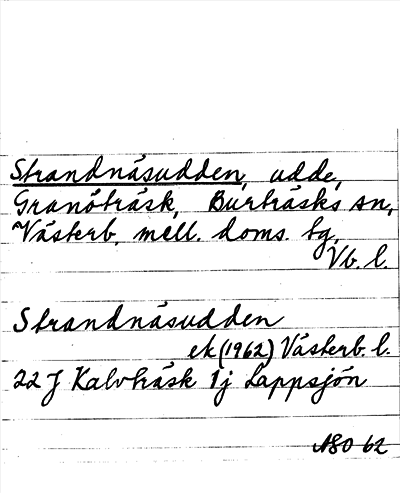 Strandnäsudden, udde,
Granöträsk, Burträsks sn,
Västerb. mell. doms. tg,
Vb. l.
Strandnäsudden
ek (1962) Västerb. l.
22 J Kalvträsk 1j Lappsjön
ASO 62